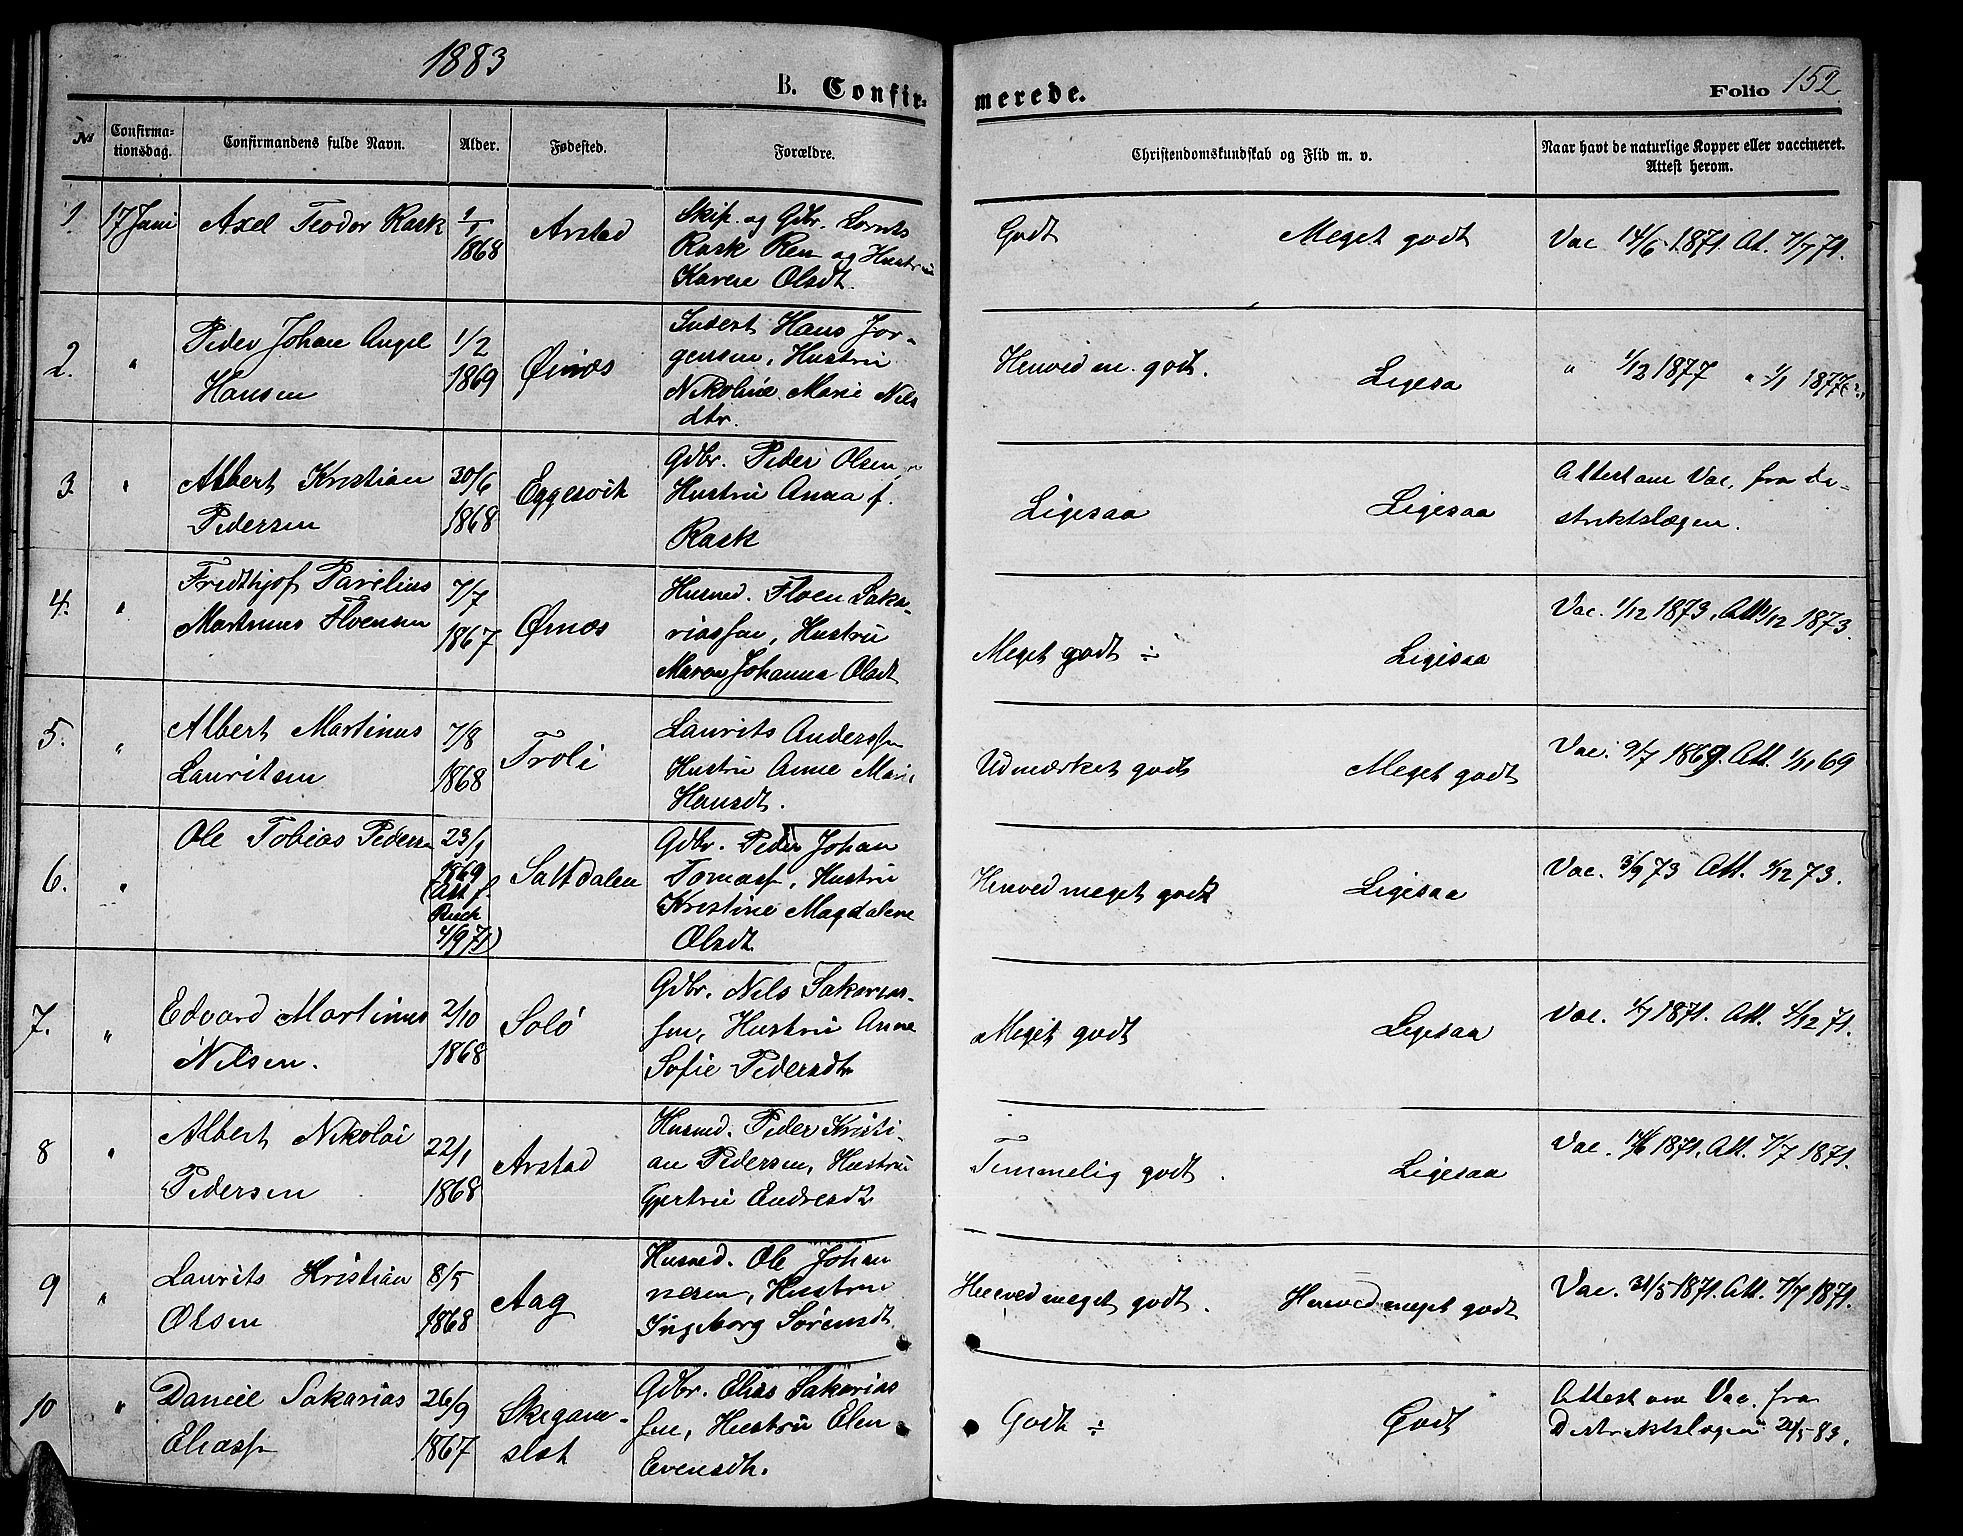 1883
B. Confir-
merede.
Folio 152
№
Confirma-
tionsdag.
Confirmandens fulde Navn.
Alder.
Fødested.
Forældre.
Christendomskundskab og Flid m. v.
Naar havt de naturlige Kopper eller vaccineret.
Attest herom.
1. 17 Juni Axel Teodor Rask
1868
Arstad
Skip. og Gdbr. Lorents
Rask og Hustru
Karen Olsdt.
Godt Meget godt Vac 14/6 1871. At. 7/7 71.
2. " Peder Johan Angel
Hansen
1/2
1869
Ørnæs
Inderst Hans Jor-
gensen, Hustru
Nikoline Marie Nils
dtr.
Henved m. godt. Ligesa " 1/12 1877 " 1/1 1877
3. " Albert Kristian
Pedersen
30/6
1868
Eggesvik
Gdbr. Peder Olsen,
Hustru Anna f.
Rask
Ligesaa Ligesaa Attest om Vac. fra di-
striktslægen.
4. " Fredthjof Parelius
Martinus Floensen
7/7
1867
Ørnæs
Husmd. Floen Saka-
riassen, Hustru
Maren Johanna Olsdt
Meget godt ÷ Ligesaa Vac. 1/12 1873. Att. 1/12 1873.
5. " Albert Martinus
Lauritsen
7/8
1868
Troli
Laurits Anderssen
Hustru Anne Marie
Hansdt.
Udmærket godt Meget godt Vac. 9/7 1869. Att. 1/11 69
6. " Ole Tobias Pedersen
23/1
1869
(Att. f.
4/9 71)
Saltdalen
Gdbr. Peder Johan
Tomass, Hustru
Kristine Magdalene
Olsdt.
Henved meget godt Ligesaa Vac. 3/9 73 Att. 1/12 73.
7. " Edvard Martinus
Nilsen.
2/10
1868
Solö
Gdbr. Nils Sakarias-
sen, Hustru Anne
Sofie Pedersdtr
Meget godt Ligesaa Vac. 4/7 1871. Att. 4/12 71.
8 " Albert Nikolai
Pedersen
22/1
1868
Arstad
Husmd. Peder Kristi-
an Pedersen, Hustru
Gjertrü Endresdt
Temmelig godt. Ligesaa Vac. 14/6 1871. Att. 7/7 1871.
9 " Laurits Kristian
Olsen
8/5
1868
Aag
Husmd. Ole Johan
nesen, Hustru
Ingeborg Sørensdt.
Henved meget godt. Henved meget godt Vac. 31/5 1871. Att. 7/7 1871.
10 " Daniel Sakarias
Eliass
26/9
1867
Skegane-
slet
Gdbr. Elias Sakarias
sen, Hustru Elen
Evensdtr.
Godt ÷ Godt Attest om Vac. fra
Distriktslægen 21/5 83.